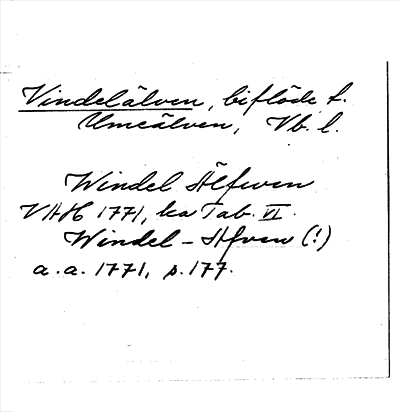 Vindelälven, biflöde t.
Umeälven, Vb. l.
Windel Älfwen
VAH 1771, ka Tab. VI.
Windel-Afven (!)
a.a. 1771, s. 177.